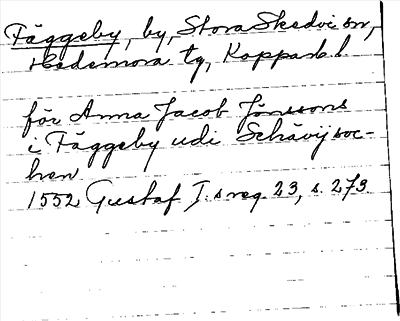 Fäggeby, by, Stora Skedvi sn,
Hedemora tg, Kopparb. l.
för Anna Jacob Jönssons
i Fäggeby udi Schävij soc-
hen
1552 Gustaf I:s reg. 23, s. 273